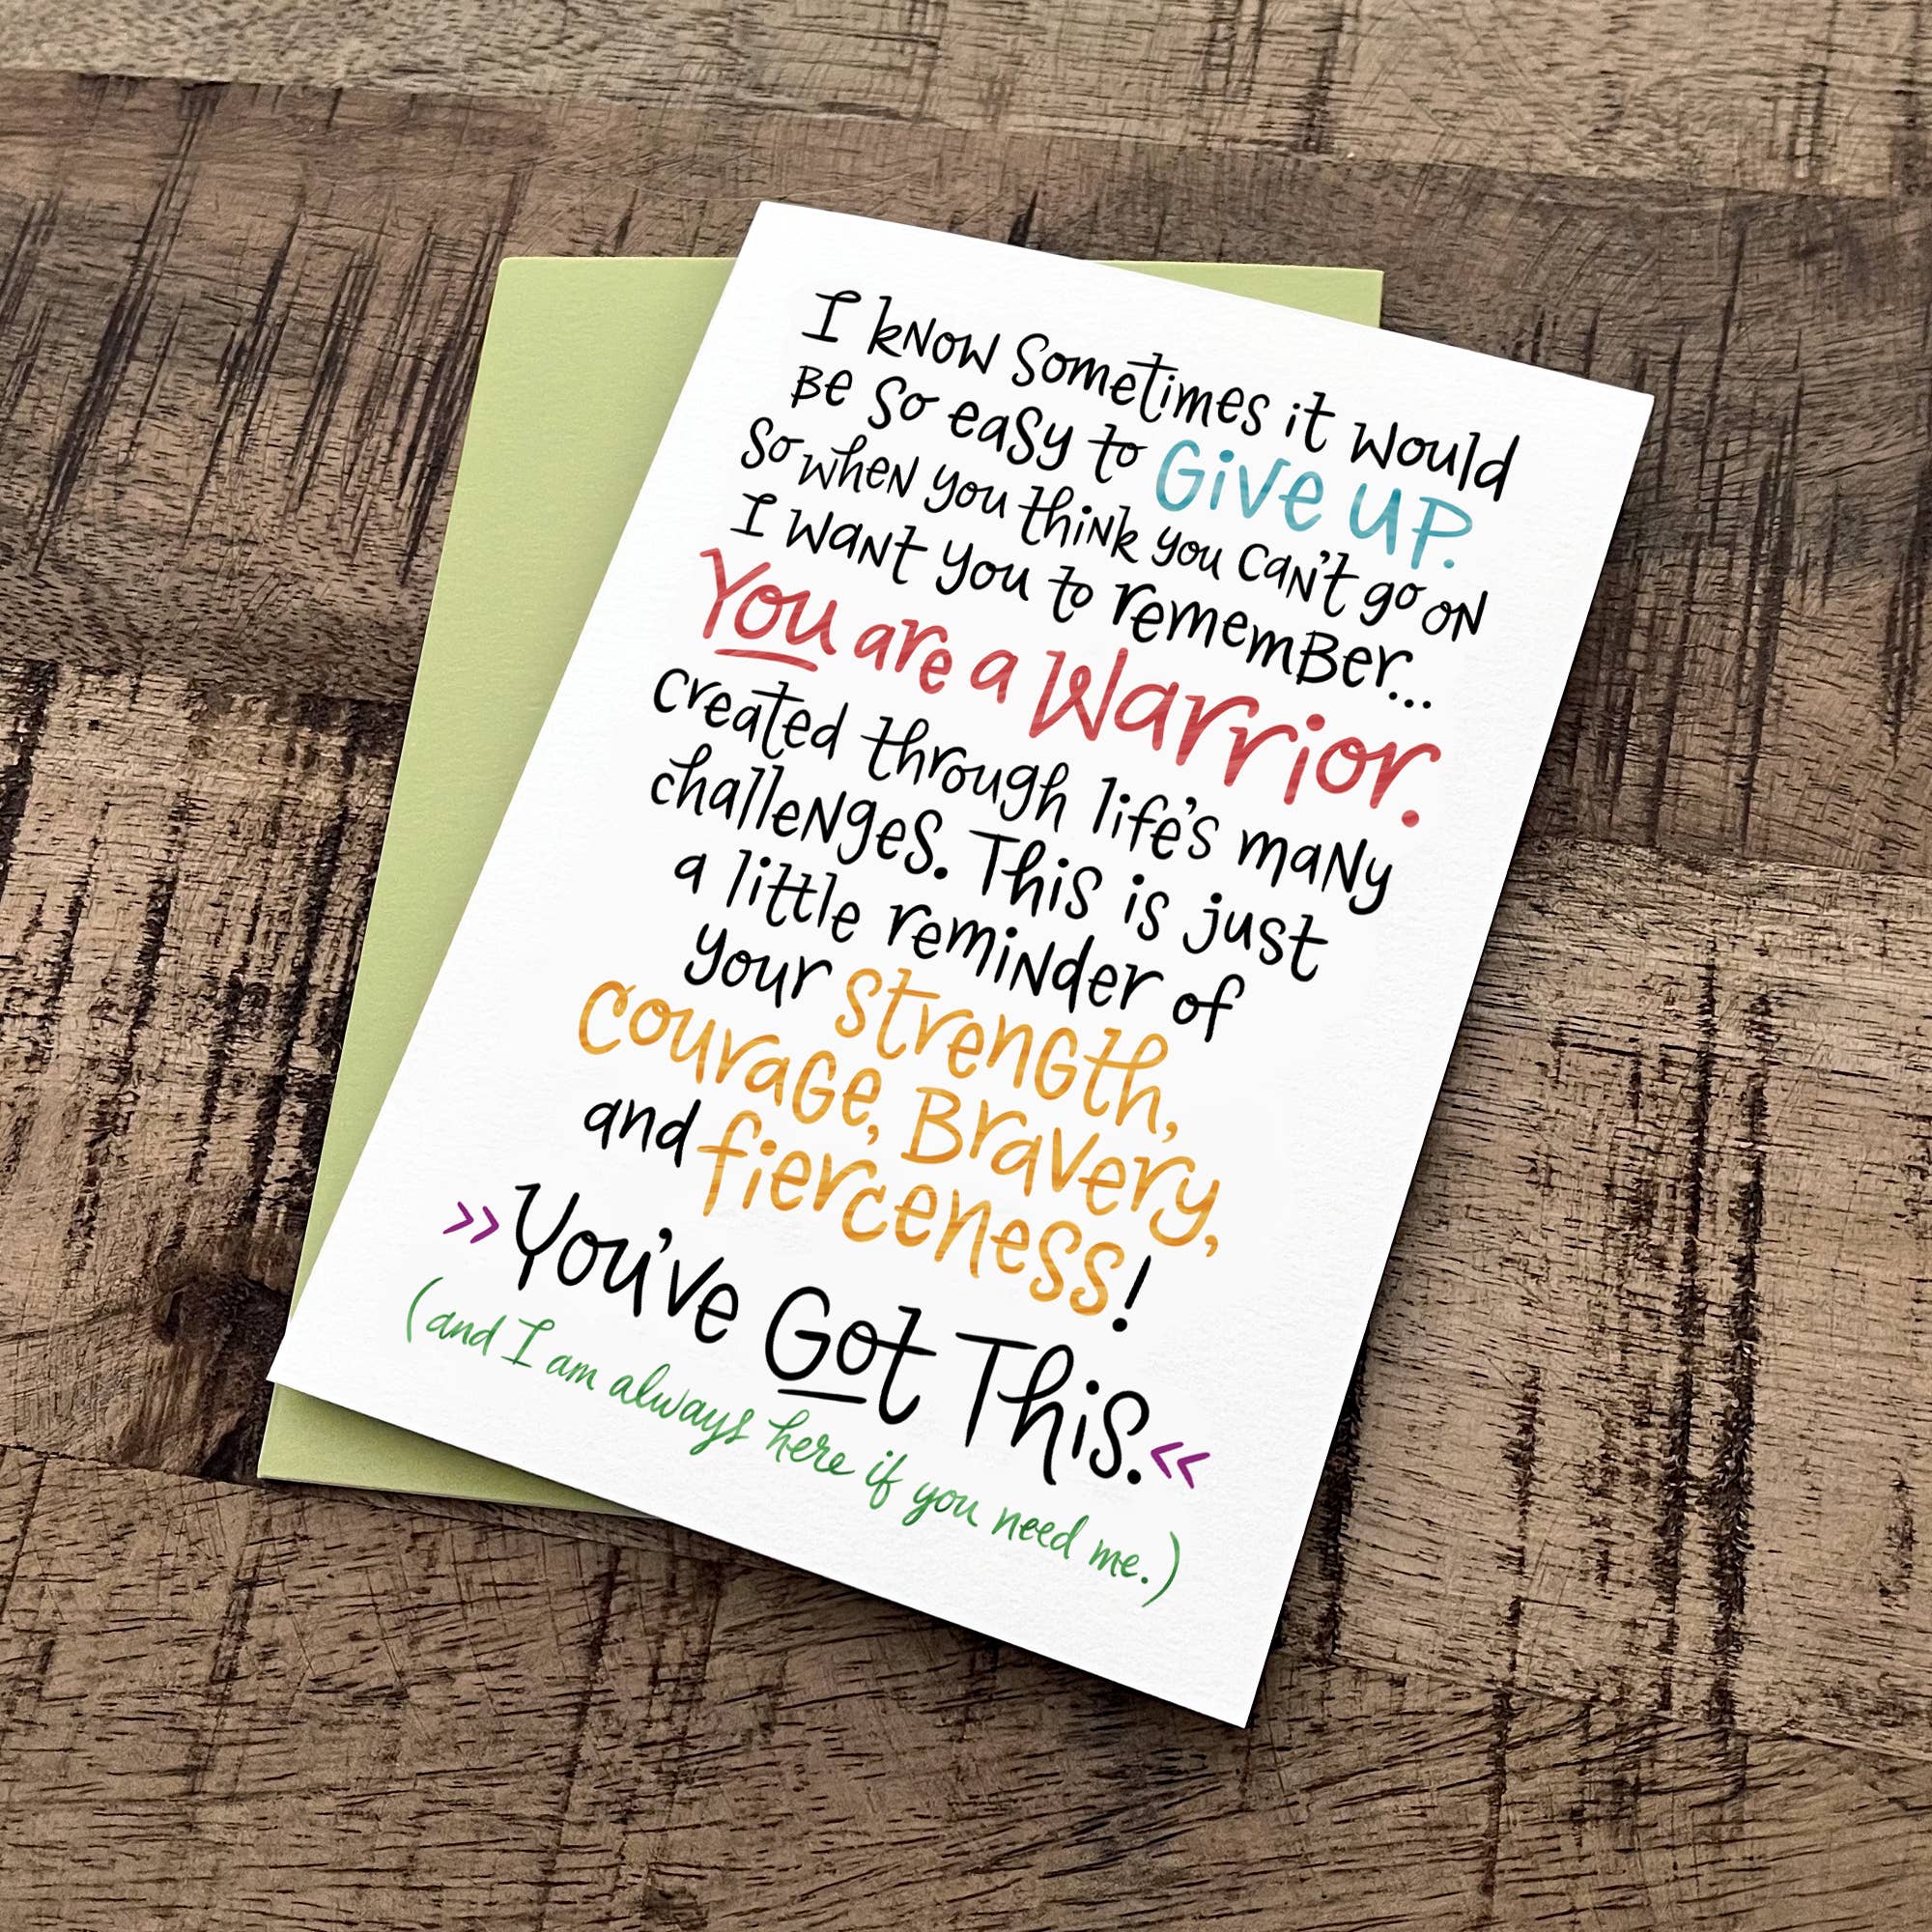 I know sometimes it would
be so easy to Give up.
So when you think you can't go on
I want you to remember...
You are a Warrior.
created through life's many
challenges. This is just
a little reminder of
your strength,
courage, Bravery,
and fierceness!
>> You've Got This. <<
(and I am always here if you need me.)